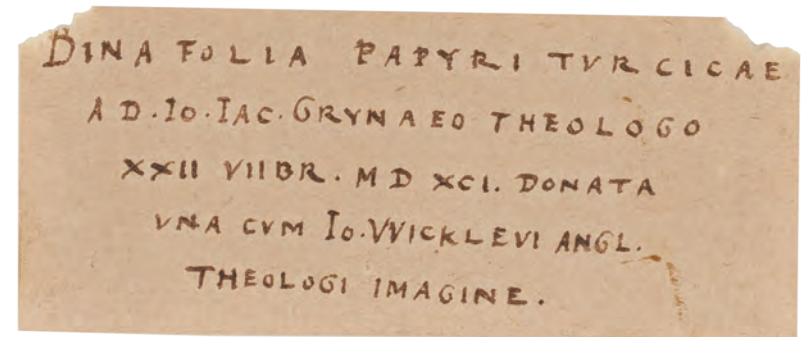 DINA FOLIA PAPYRI TVRCICAE
A D. IO. IAC. GRYNAEO THEOLOGO
XXII VIIBR. MD XCI. DONATA
VNA CVM IO. WICKLEVI ANGL.
THEOLOGI IMAGINE.